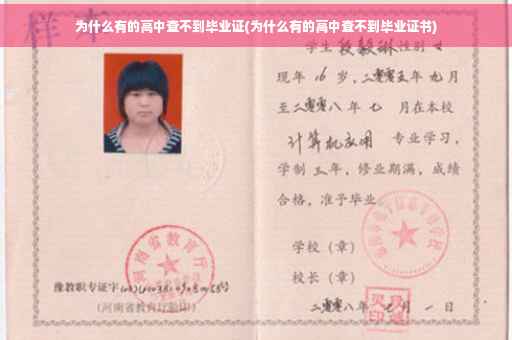 为什么有的高中查不到毕业证(为什么有的高中查不到毕业证书)
样本
学生段毅琳性别女
现年16岁，二零零五年九月
至二零零八年七月在本校
计算机应用 专业学习，
学制三年，修业期满，成绩
合格，准予毕业
学校（章）
校长（章）
二零零八年七月一日
河南省教育厅
豫教职专证字
（河南省教育厅验印）